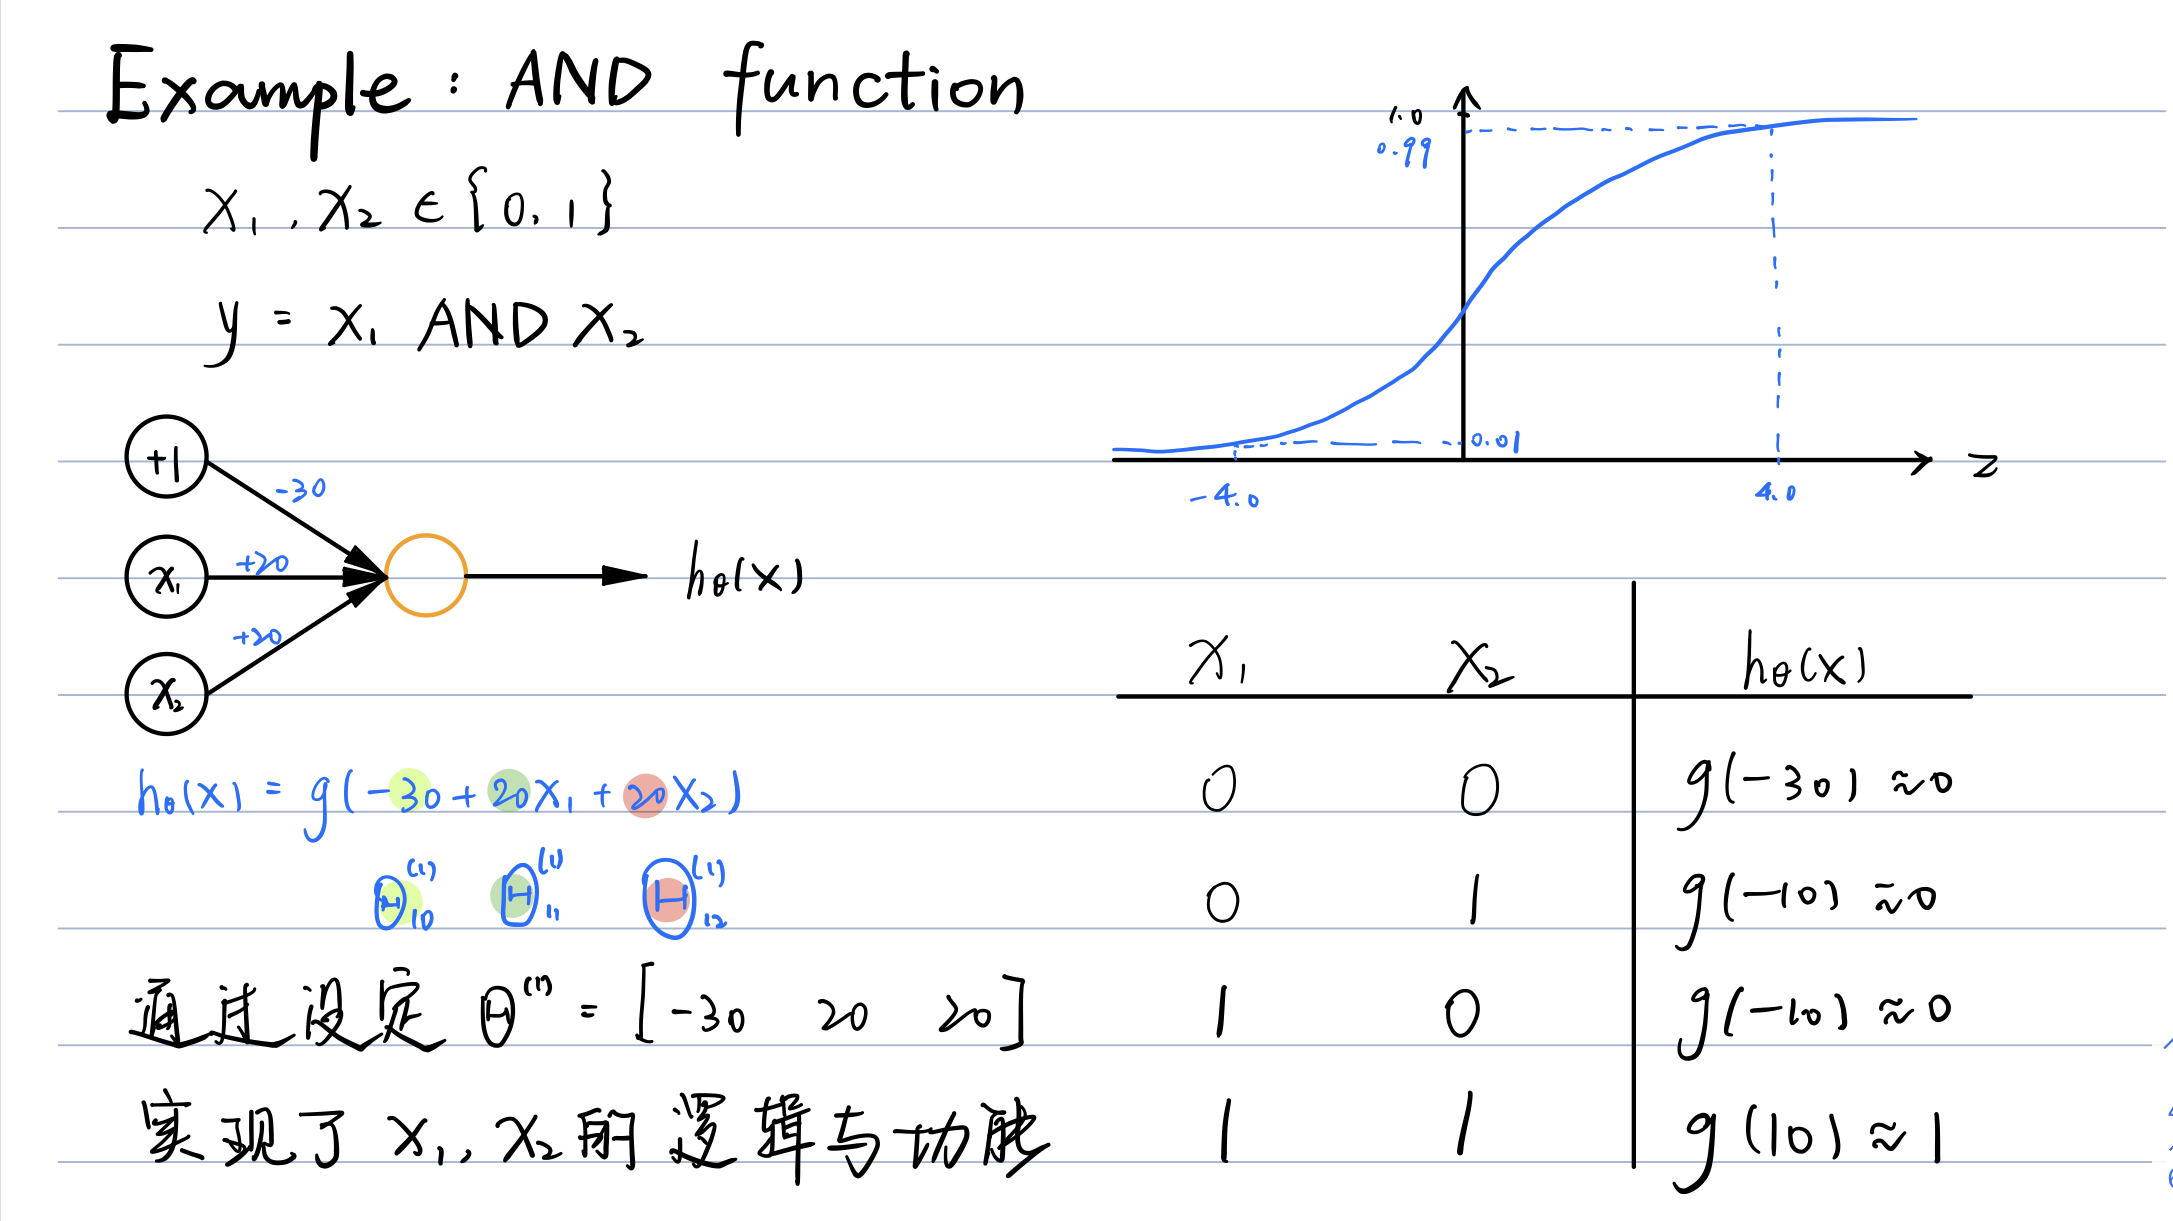 Example: AND function
x₁, x₂ ∈ {0, 1}
y = x₁ AND x₂
+1
-30
x₁
+20
x₂
+20
hθ(x)
hθ(x) = g(-30 + 20x₁ + 20x₂)
Θ₁₀⁽¹⁾ Θ₁₁⁽¹⁾ Θ₁₂⁽¹⁾
通过设定 Θ⁽¹⁾ = [-30 20 20]
实现了 x₁, x₂ 的逻辑与功能
1.0
0.99
0.01
z
-4.0 4.0
x₁ x₂ hθ(x)
0 0 g(-30) ≈ 0
0 1 g(-10) ≈ 0
1 0 g(-10) ≈ 0
1 1 g(10) ≈ 1